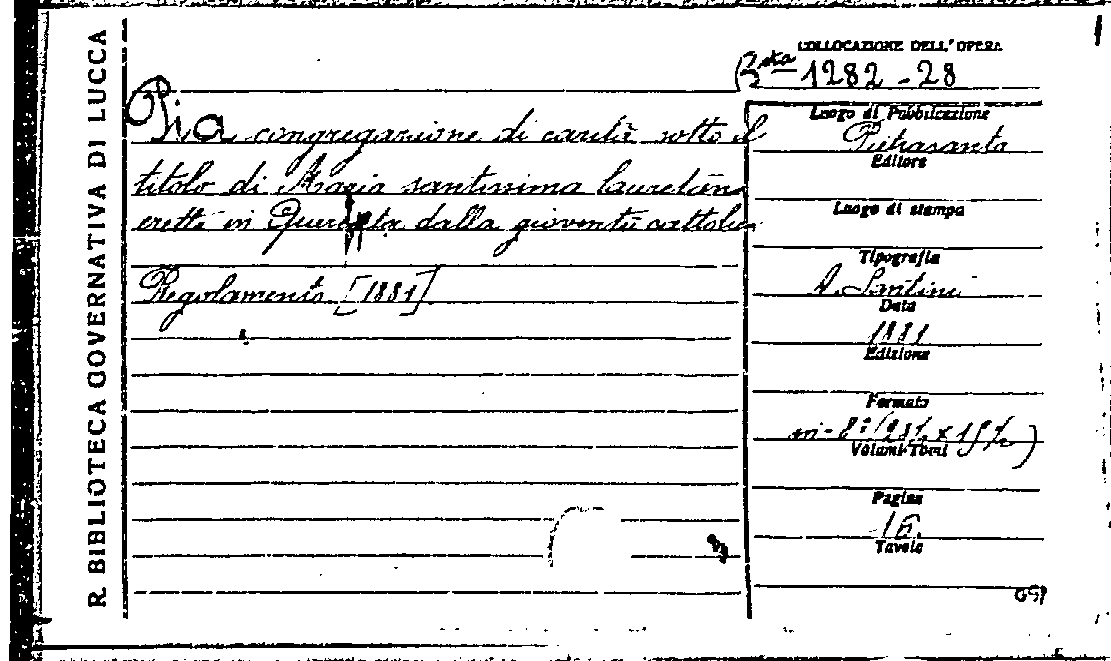 R. BIBLIOTECA GOVERNATIVA DI LUCCA
COLLOCAZIONE DELL'OPERA
Bta 1282-28
Pia congregazione di carità sotto il
titolo di Maria santissima lauretana
eretta in Querceta dalla gioventù cattolica
Regolamento [1881]
Luogo di Pubblicazione
Pietrasanta
Editore
Luogo di stampa
Tipografia
A. Santini
Data
1881
Edizione
Formato
in-8º
Volumi-Tomi
Pagine
16.
Tavole